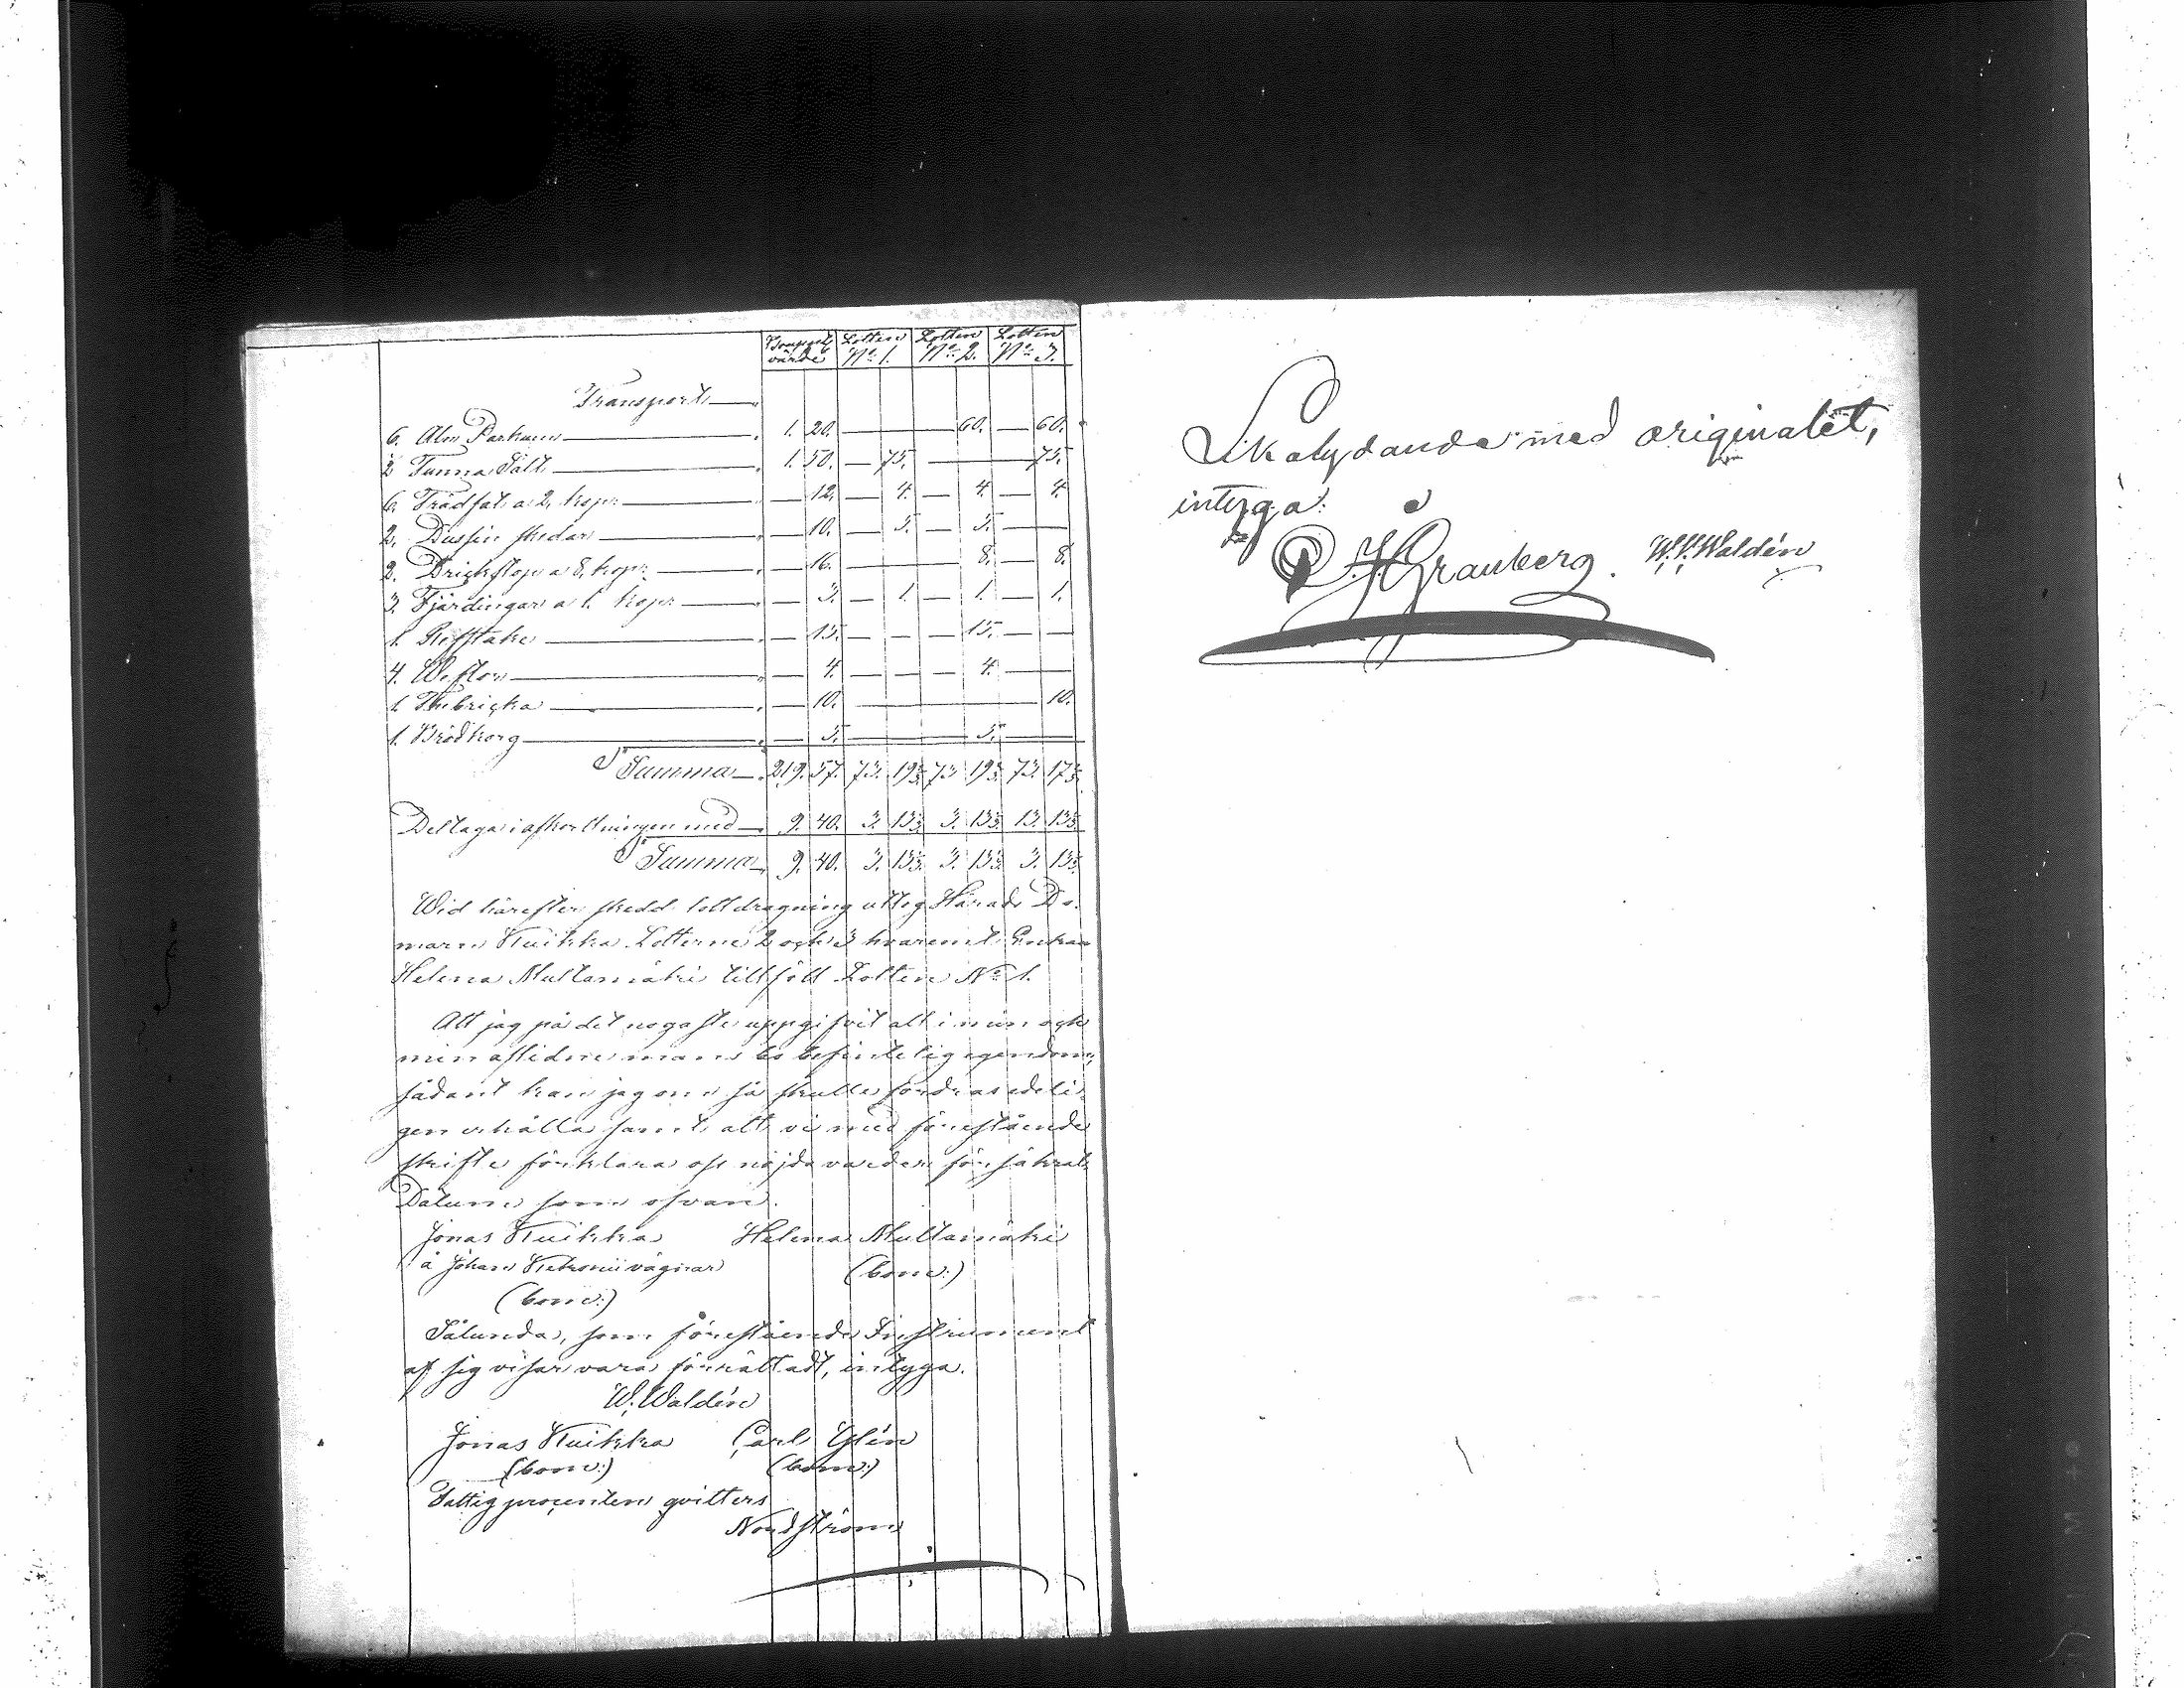 Bouppt. Lotten Lotten Lotten
värde N:o 1. N:o 2. N:o 3.
Transport
6. Aln Parkum 1. 20. — — 60. — 60.
½ Tunna Salt 1. 50. — 75. — 75.
6. Trädfat a 2, kopr — 12. — 4. — 4. — 4.
2. Dussin skedar — 10. — 5. — 5. —
2. Drickstop a 8, kopr — 16. — 8. 8.
3. Fjärdingar a 1. kopr — 3. — 1. — 1. — 1.
1. — 15. — — — 15. — —
4. — 4. — — — 4. —
1. — 10. — 10.
1. Brödkorg — 5. — 5. —
Summa 219. 57. 73. 19⅓ 73 19⅓ 73. 17⅓
Deltaga i afkortningen med 9. 40. 3. 13⅓ 3. 13⅓ 13. 13⅓
Summa 9. 40. 3. 13⅓ 3. 13⅓ 3. 13⅓
Wid härefter skedd lottdragning uttog Härads Do-
maren Kuikka Lotterne 2 och 3 hvaremot Enkan
Helena Multamäki tillföll Lotten N:o 1.
Att jag på det nogaste uppgifvit allt i min och
min aflidne mans bo befintelig egendom,
sådant kan jag om så skulle fordras edeli-
gen erhålla samt att vi med förestående
skifte förklara oss nöjda varder försäkrat
Datum som ofvan.
Jonas Kuikka Helena Multamäki
å Johan vägnar (bom:)
(bom:)
Sålunda, som förestående Instrument
af sig visar vara förrättadt, intyga.
W. Waldén
Jonas Kuikka Carl Glén
(bom:) (bom:)
Fattigprocenten qvitters
Nordström
Likalydande med originalet,
intyga:
Granberg. W. W. Waldén